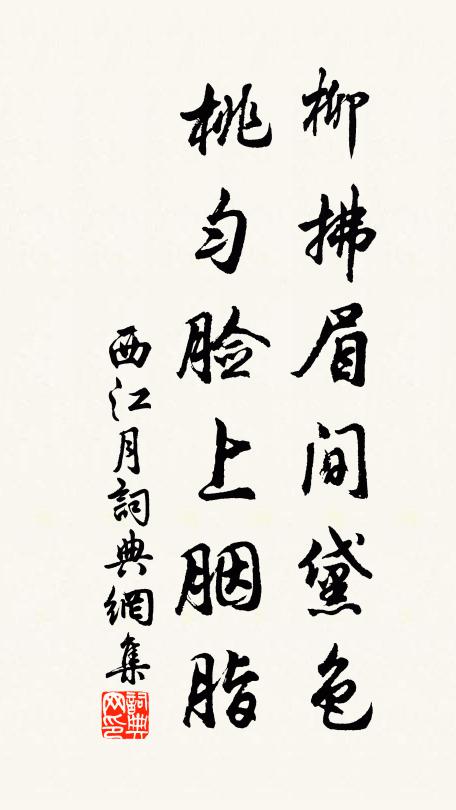 柳拂眉间黛色
桃匀脸上胭脂
西江月詞典網集
詞典網印